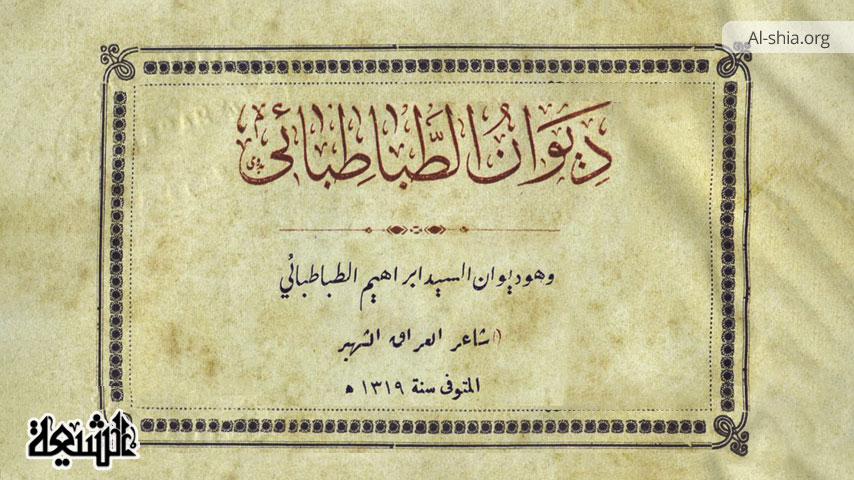 Al-shia.org
دِيوَانُ الطَّبَاطِبَائى
وهو ديوان السيد ابراهيم الطباطبائي
شاعر العراق الشهير
المتوفى سنة ١٣١٩ ھ
الشيعة